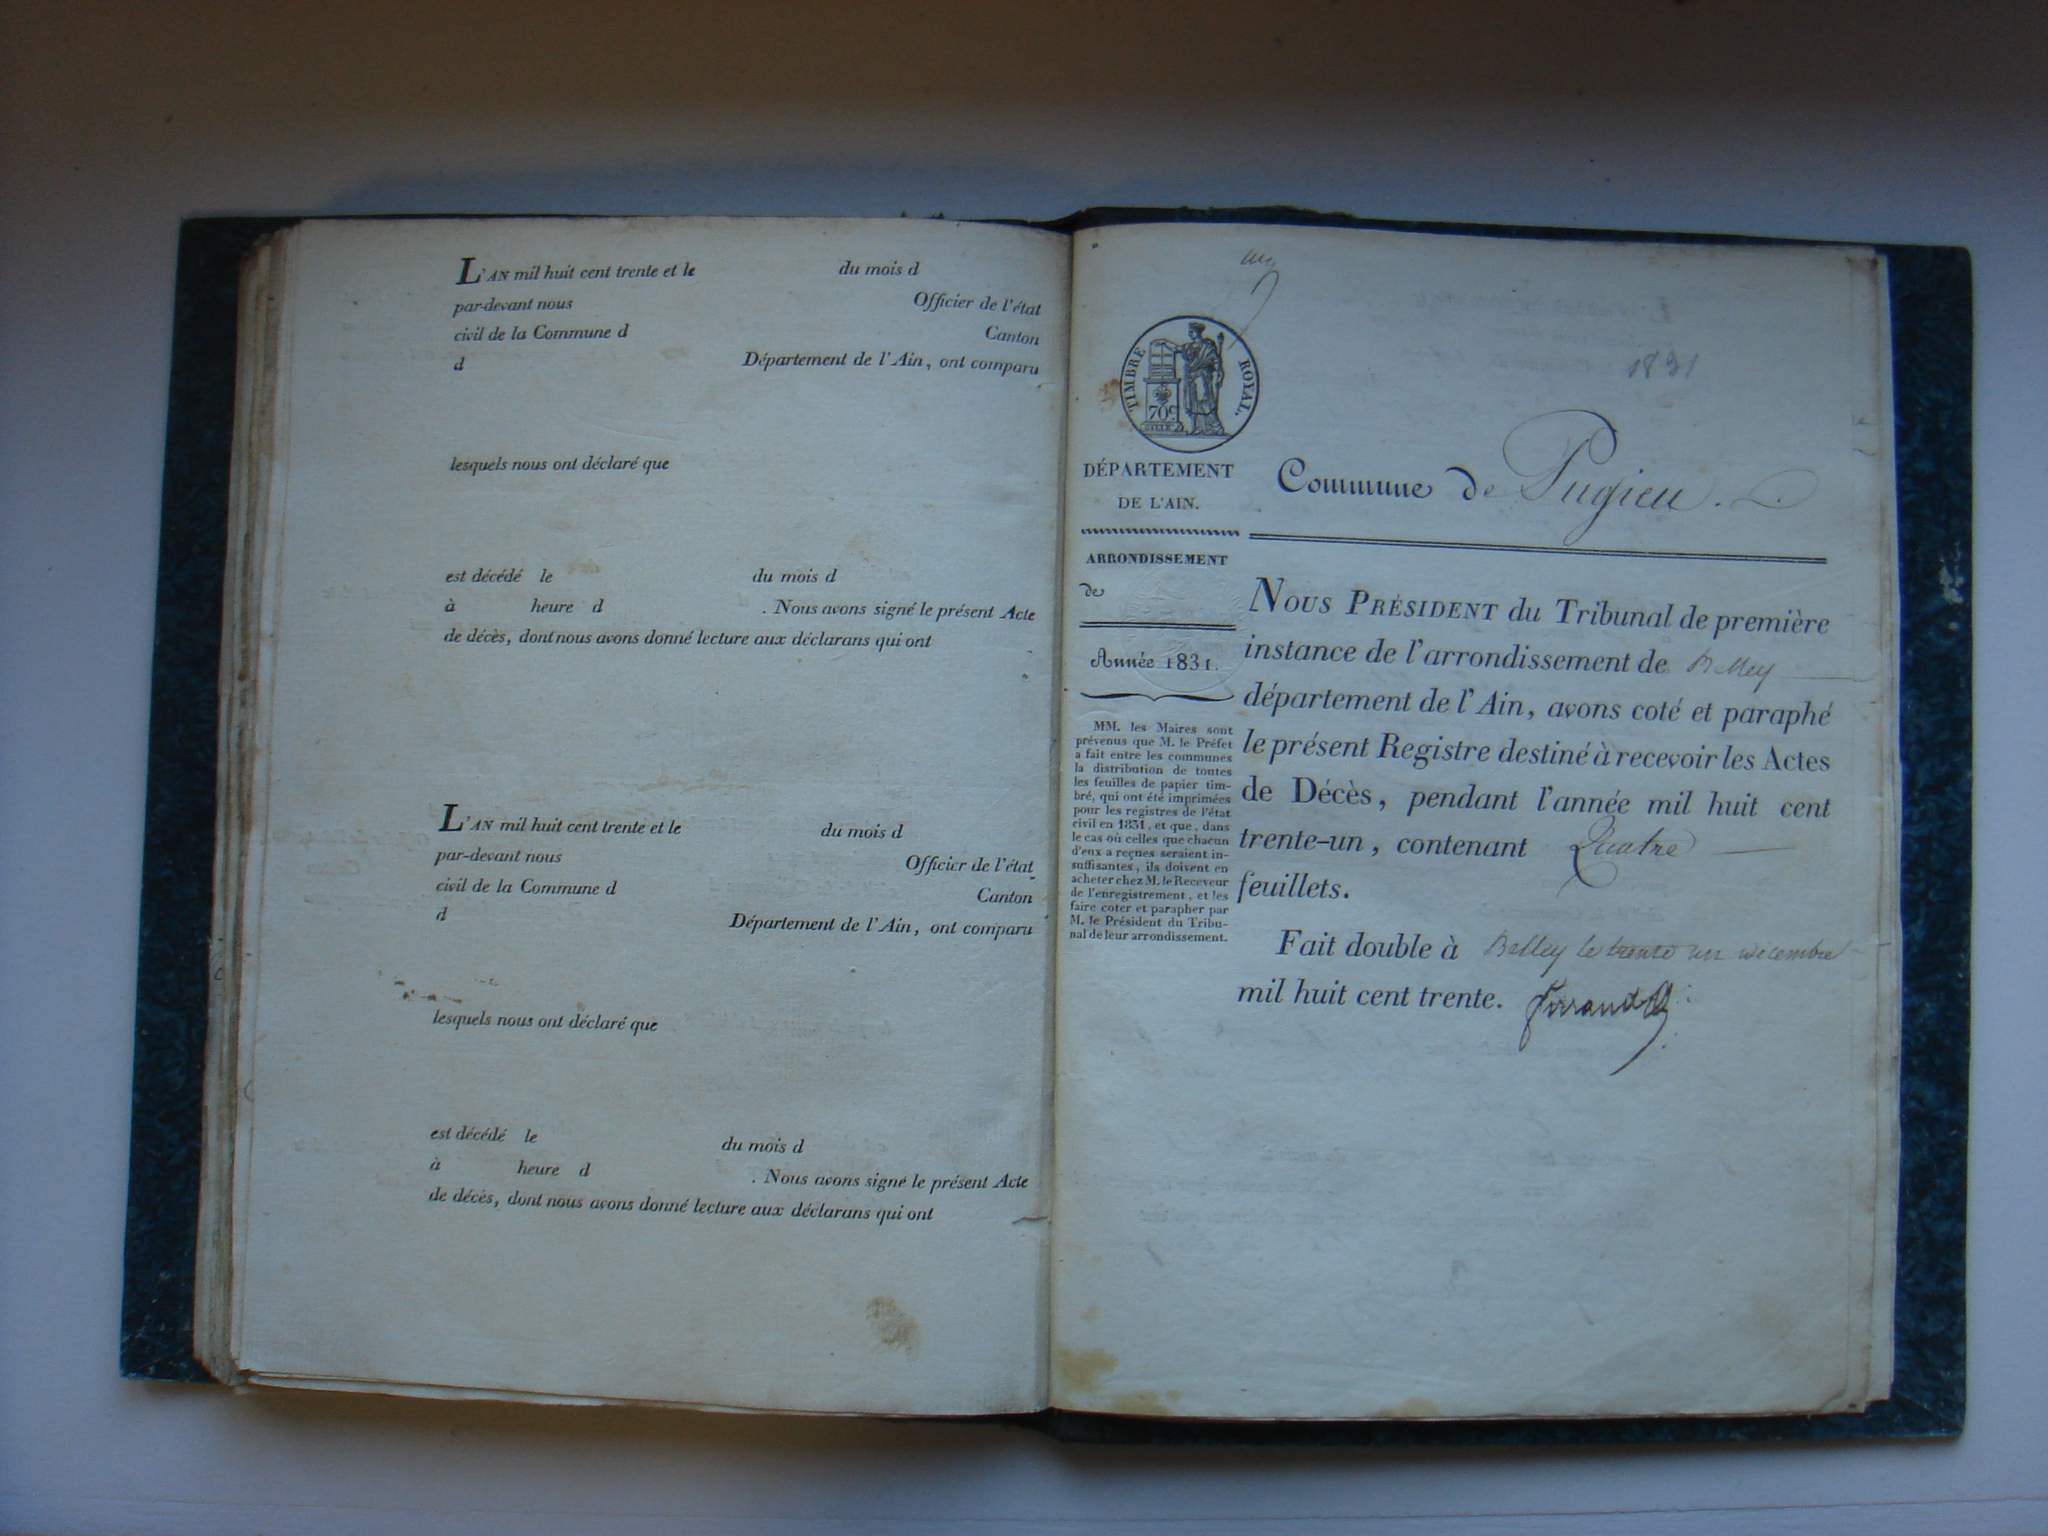 L'AN mil huit cent trente et le du mois d
par-devant nous Officier de l'état
civil de la Commune d Canton
d Département de l'Ain, ont comparu
lesquels nous ont déclaré que
est décédé le du mois d
à heure d . Nous avons signé le présent Acte
de décès, dont nous avons donné lecture aux déclarans qui ont
L'AN mil huit cent trente et le du mois d
par-devant nous Officier de l'état
civil de la Commune d Canton
d Département de l'Ain, ont comparu
lesquels nous ont déclaré que
est décédé le du mois d
à heure d . Nous avons signé le présent Acte
de décès, dont nous avons donné lecture aux déclarans qui ont
1831
TIMBRE ROYAL.
70c
DÉPARTEMENT
DE L'AIN.
ARRONDISSEMENT
de
Année 1831.
MM. les Maires sont
prévenus que M. le Préfet
a fait entre les communes
la distribution de toutes
les feuilles de papier tim-
bré, qui ont été imprimées
pour les registres de l'état
civil en 1831, et que, dans
le cas où celles que chacun
d'eux a reçues seraient in-
suffisantes, ils doivent en
acheter chez M. le Receveur
de l'enregistrement, et les
faire coter et parapher par
M. le Président du Tribu-
nal de leur arrondissement.
Commune de Pugieu.
NOUS PRÉSIDENT du Tribunal de première
instance de l'arrondissement de Belley
département de l'Ain, avons coté et paraphé
le présent Registre destiné à recevoir les Actes
de Décès, pendant l'année mil huit cent
trente-un, contenant Quatre
feuillets.
Fait double à Belley le trente un décembre
mil huit cent trente.